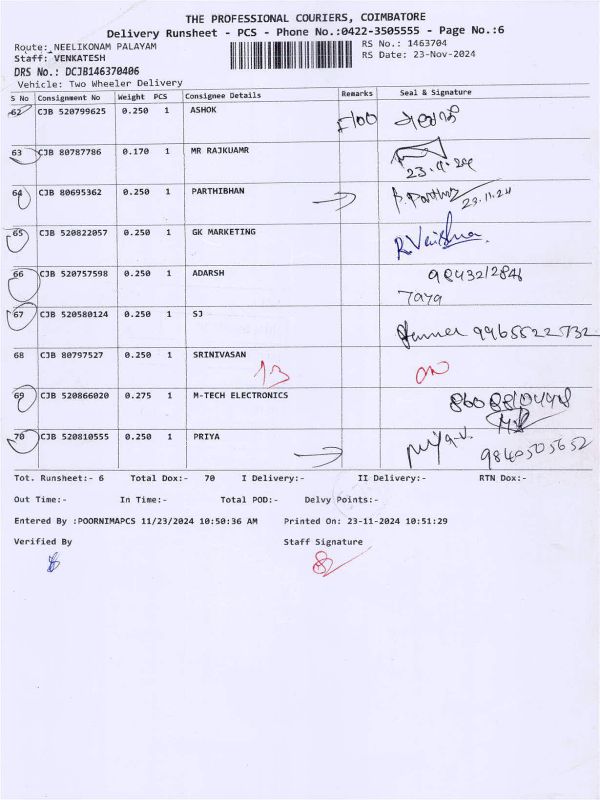 THE PROFESSIONAL COURIERS, COIMBATORE
Delivery Runsheet - PCS - Phone No.:0422-3505555 - Page No.:6
Route: NEELIKONAM PALAYAM
RS No.: 1463704
Staff: VENKATESH
RS Date: 23-Nov-2024
DRS No.: DCJB146370406
Vehicle: Two Wheeler Delivery
S No Consignment No Weight PCS Consignee Details Remarks Seal & Signature
62 CJB 520799625 0.250 1 ASHOK
63 CJB 80787786 0.170 1 MR RAJKUAMR
64 CJB 80695362 0.250 1 PARTHIBHAN 23.11.24
65 CJB 520822057 0.250 1 GK MARKETING
66 CJB 520757598 0.250 1 ADARSH
67 CJB 520580124 0.250 1 SJ 9965522732
68 CJB 80797527 0.250 1 SRINIVASAN
13
69 CJB 520866020 0.275 1 M-TECH ELECTRONICS
70 CJB 520810555 0.250 1 PRIYA Priya.V. 9840505652
Tot. Runsheet:- 6 Total Dox:- 70 I Delivery:- II Delivery:- RTN Dox:-
Out Time:- In Time:- Total POD:- Delvy Points:-
Entered By :POORNIMAPCS 11/23/2024 10:50:36 AM Printed On: 23-11-2024 10:51:29
Verified By Staff Signature